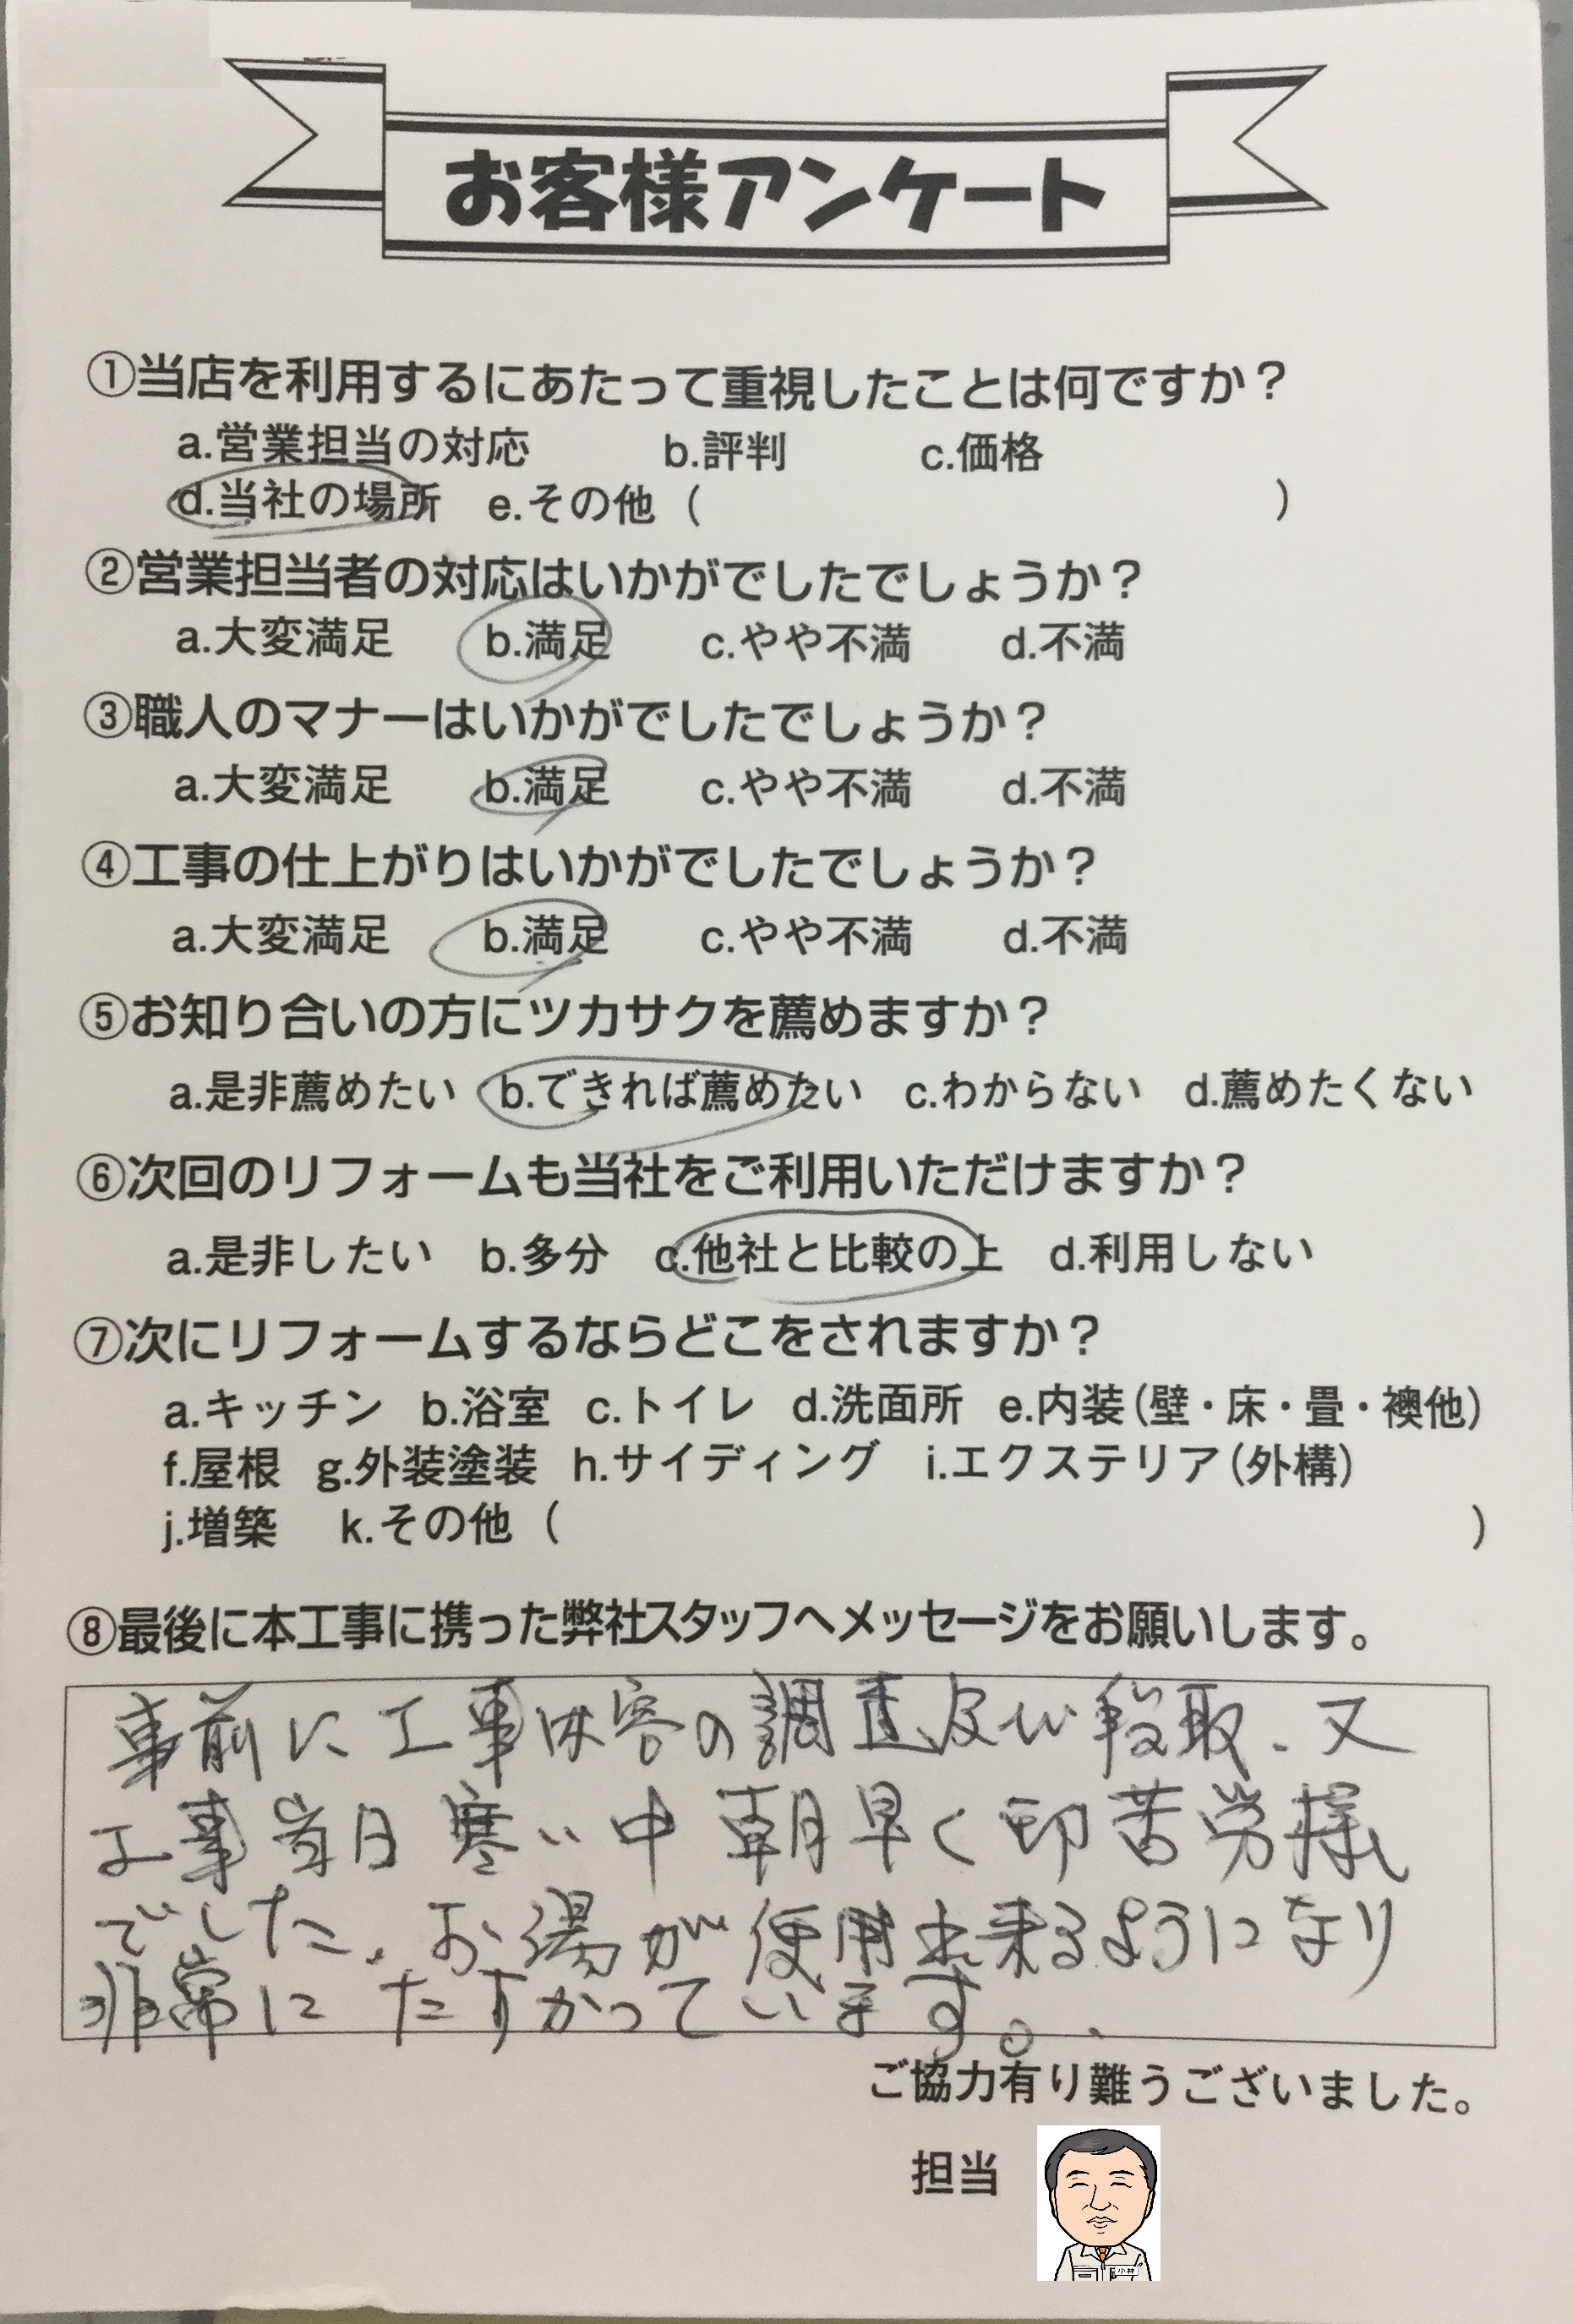 お客様アンケート
①当店を利用するにあたって重視したことは何ですか？
a.営業担当の対応 b.評判 c.価格
d.当社の場所 e.その他（ ）
②営業担当者の対応はいかがでしたでしょうか？
a.大変満足 b.満足 c.やや不満 d.不満
③職人のマナーはいかがでしたでしょうか？
a.大変満足 b.満足 c.やや不満 d.不満
④工事の仕上がりはいかがでしたでしょうか？
a.大変満足 b.満足 c.やや不満 d.不満
⑤お知り合いの方にツカサクを薦めますか？
a.是非薦めたい b.できれば薦めたい c.わからない d.薦めたくない
⑥次回のリフォームも当社をご利用いただけますか？
a.是非したい b.多分 c.他社と比較の上 d.利用しない
⑦次にリフォームするならどこをされますか？
a.キッチン b.浴室 c.トイレ d.洗面所 e.内装（壁・床・畳・襖他）
f.屋根 g.外装塗装 h.サイディング i.エクステリア（外構）
j.増築 k.その他（ ）
⑧最後に本工事に携った弊社スタッフへメッセージをお願いします。
事前に工事内容の調査及び段取、又
工事当日寒い中朝早く御苦労様
でした、お湯が使用出来るようになり
非常にたすかっています。
ご協力有り難うございました。
担当
小林